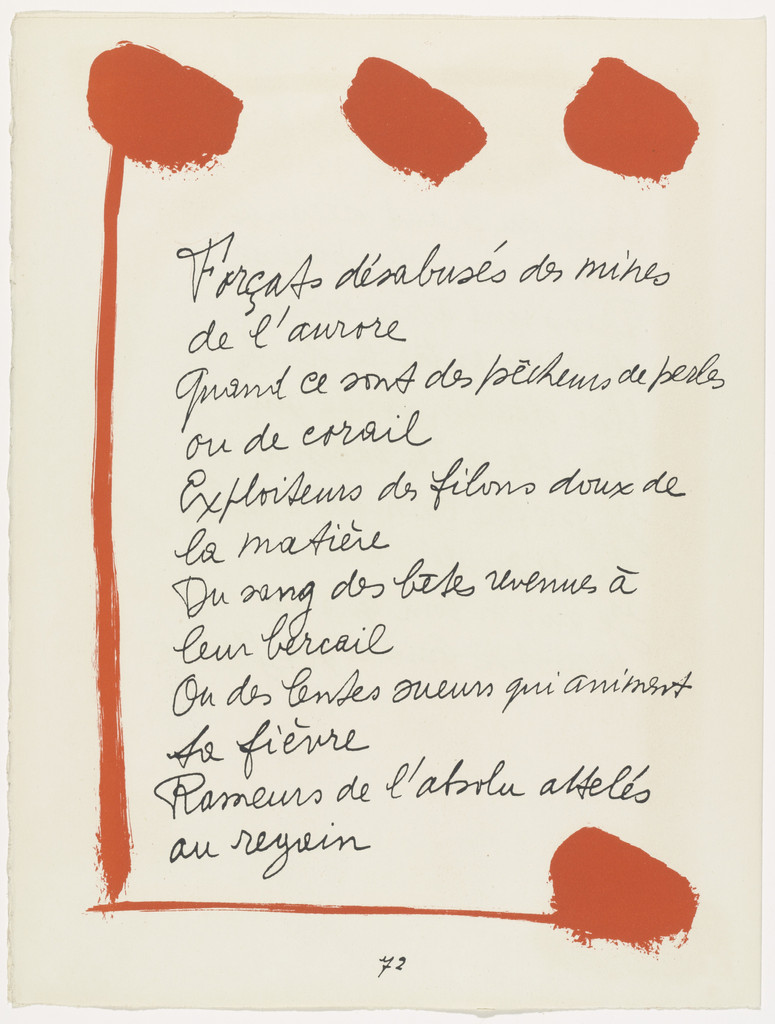 Forçats désabusés des mines
de l'aurore
Quand ce sont des pêcheurs de perles
ou de corail
Exploiteurs des filons doux de
la matière
Du sang des bêtes revenues à
leur bercail
Ou des lentes sueurs qui animent
ta fièvre
Rameurs de l'absolu attelés
au regain
72